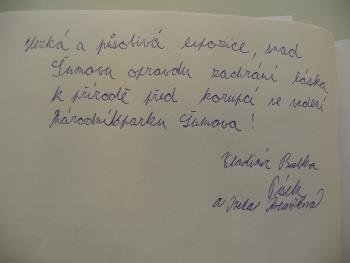 Hezká a působivá expozice, snad
Šumavu opravdu zachrání láska
k přírodě před korupcí ve vedení
Národního parku Šumava!
Vladimír Babka
Písek
a Iveta